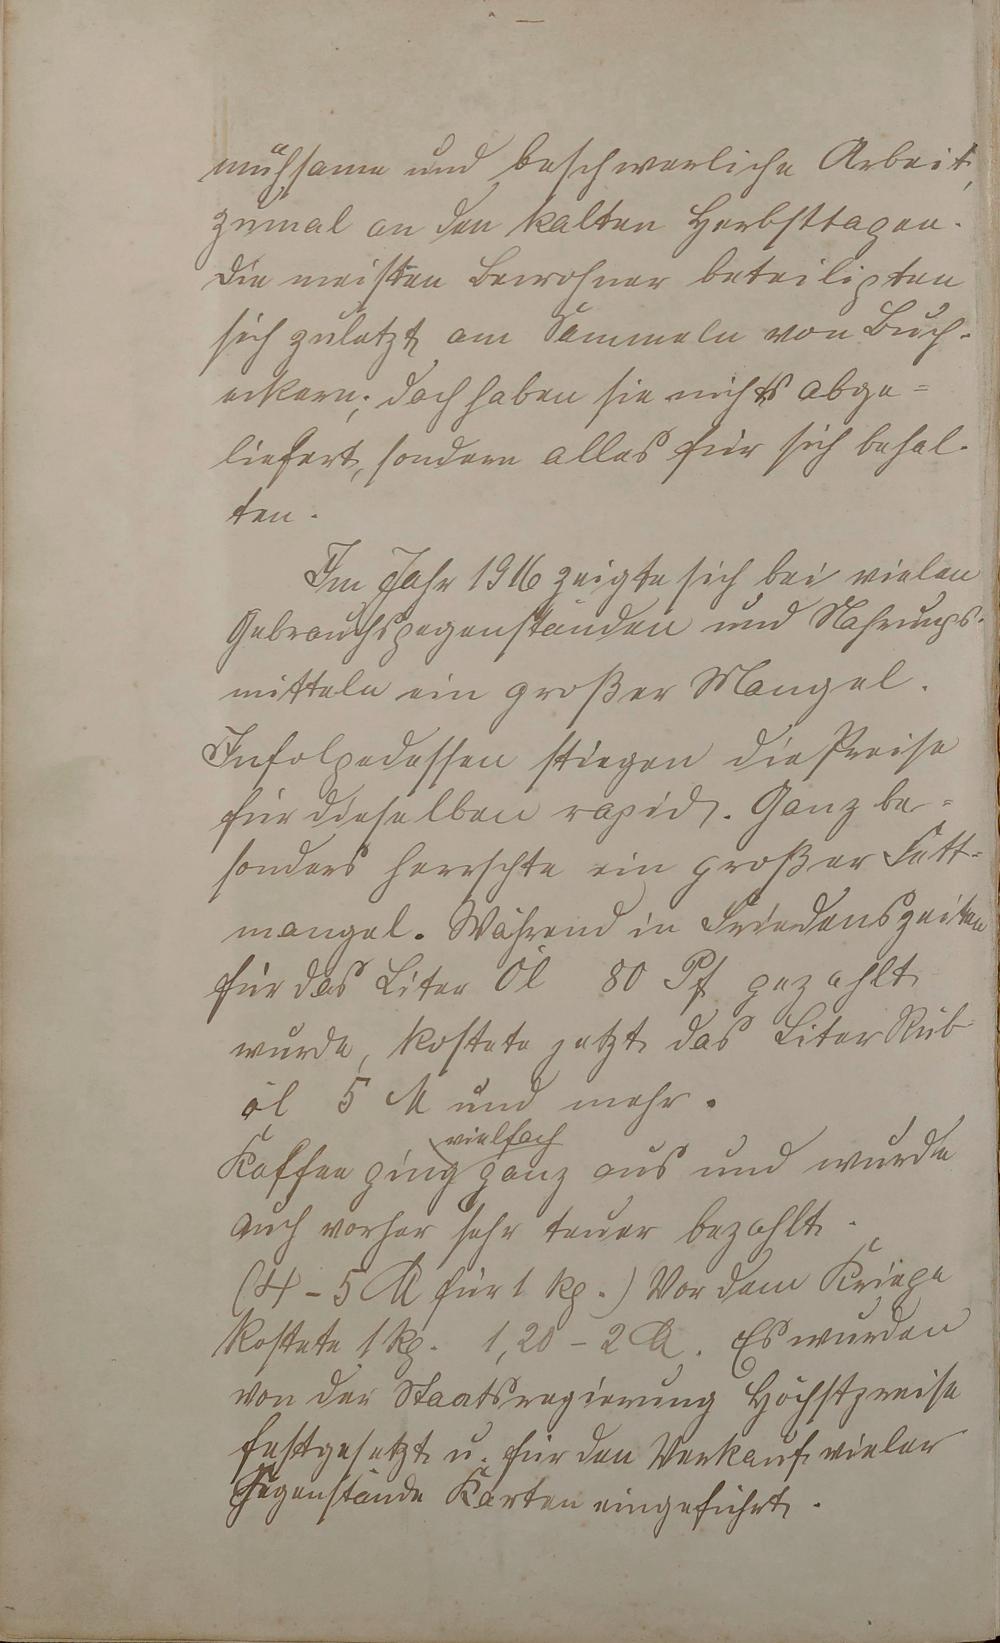 mühsame und beschwerliche Arbeit,
zumal an den kalten Herbsttagen.
Die meisten Bewohner beteiligten
sich zuletzt am Sammeln von Buch-
eckern; doch haben sie nichts abge=
liefert, sondern alles für sich behal-
ten.
Im Jahr 1916 zeigte sich bei vielen
Gebrauchsgegenständen und Nahrungs-
mitteln ein großer Mangel.
Infolgedessen stiegen die Preise
für dieselben rapid. Ganz be=
sonders herrschte ein großer Fett=
mangel. Während in Friedenszeiten
für das Liter Öl 80 Pf gezahlt
wurde, kostete jetzt das Liter Rüb
öl 5 M und mehr.
vielfach
Kaffee ging ganz aus und wurde
auch vorher sehr teuer bezahlt.
(4-5 M für 1 kg.) Vor dem Kriege
kostete 1 kg. 1,20-2 M. Es wurden
von der Staatsregierung Höchstpreise
festgesetzt u. für den Verkauf vieler
Gegenstände Karten eingeführt.